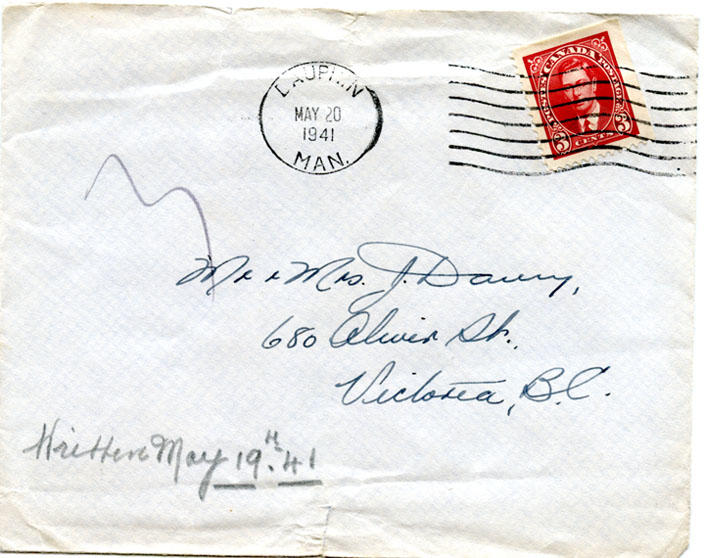 DAUPHIN
MAY 20
1941
MAN.
CANADA
POSTES POSTAGE
3 CENTS 3
Mr & Mrs. J. Dawry,
680 Oliver St.,
Victoria, B.C.
Written May 19th. 41